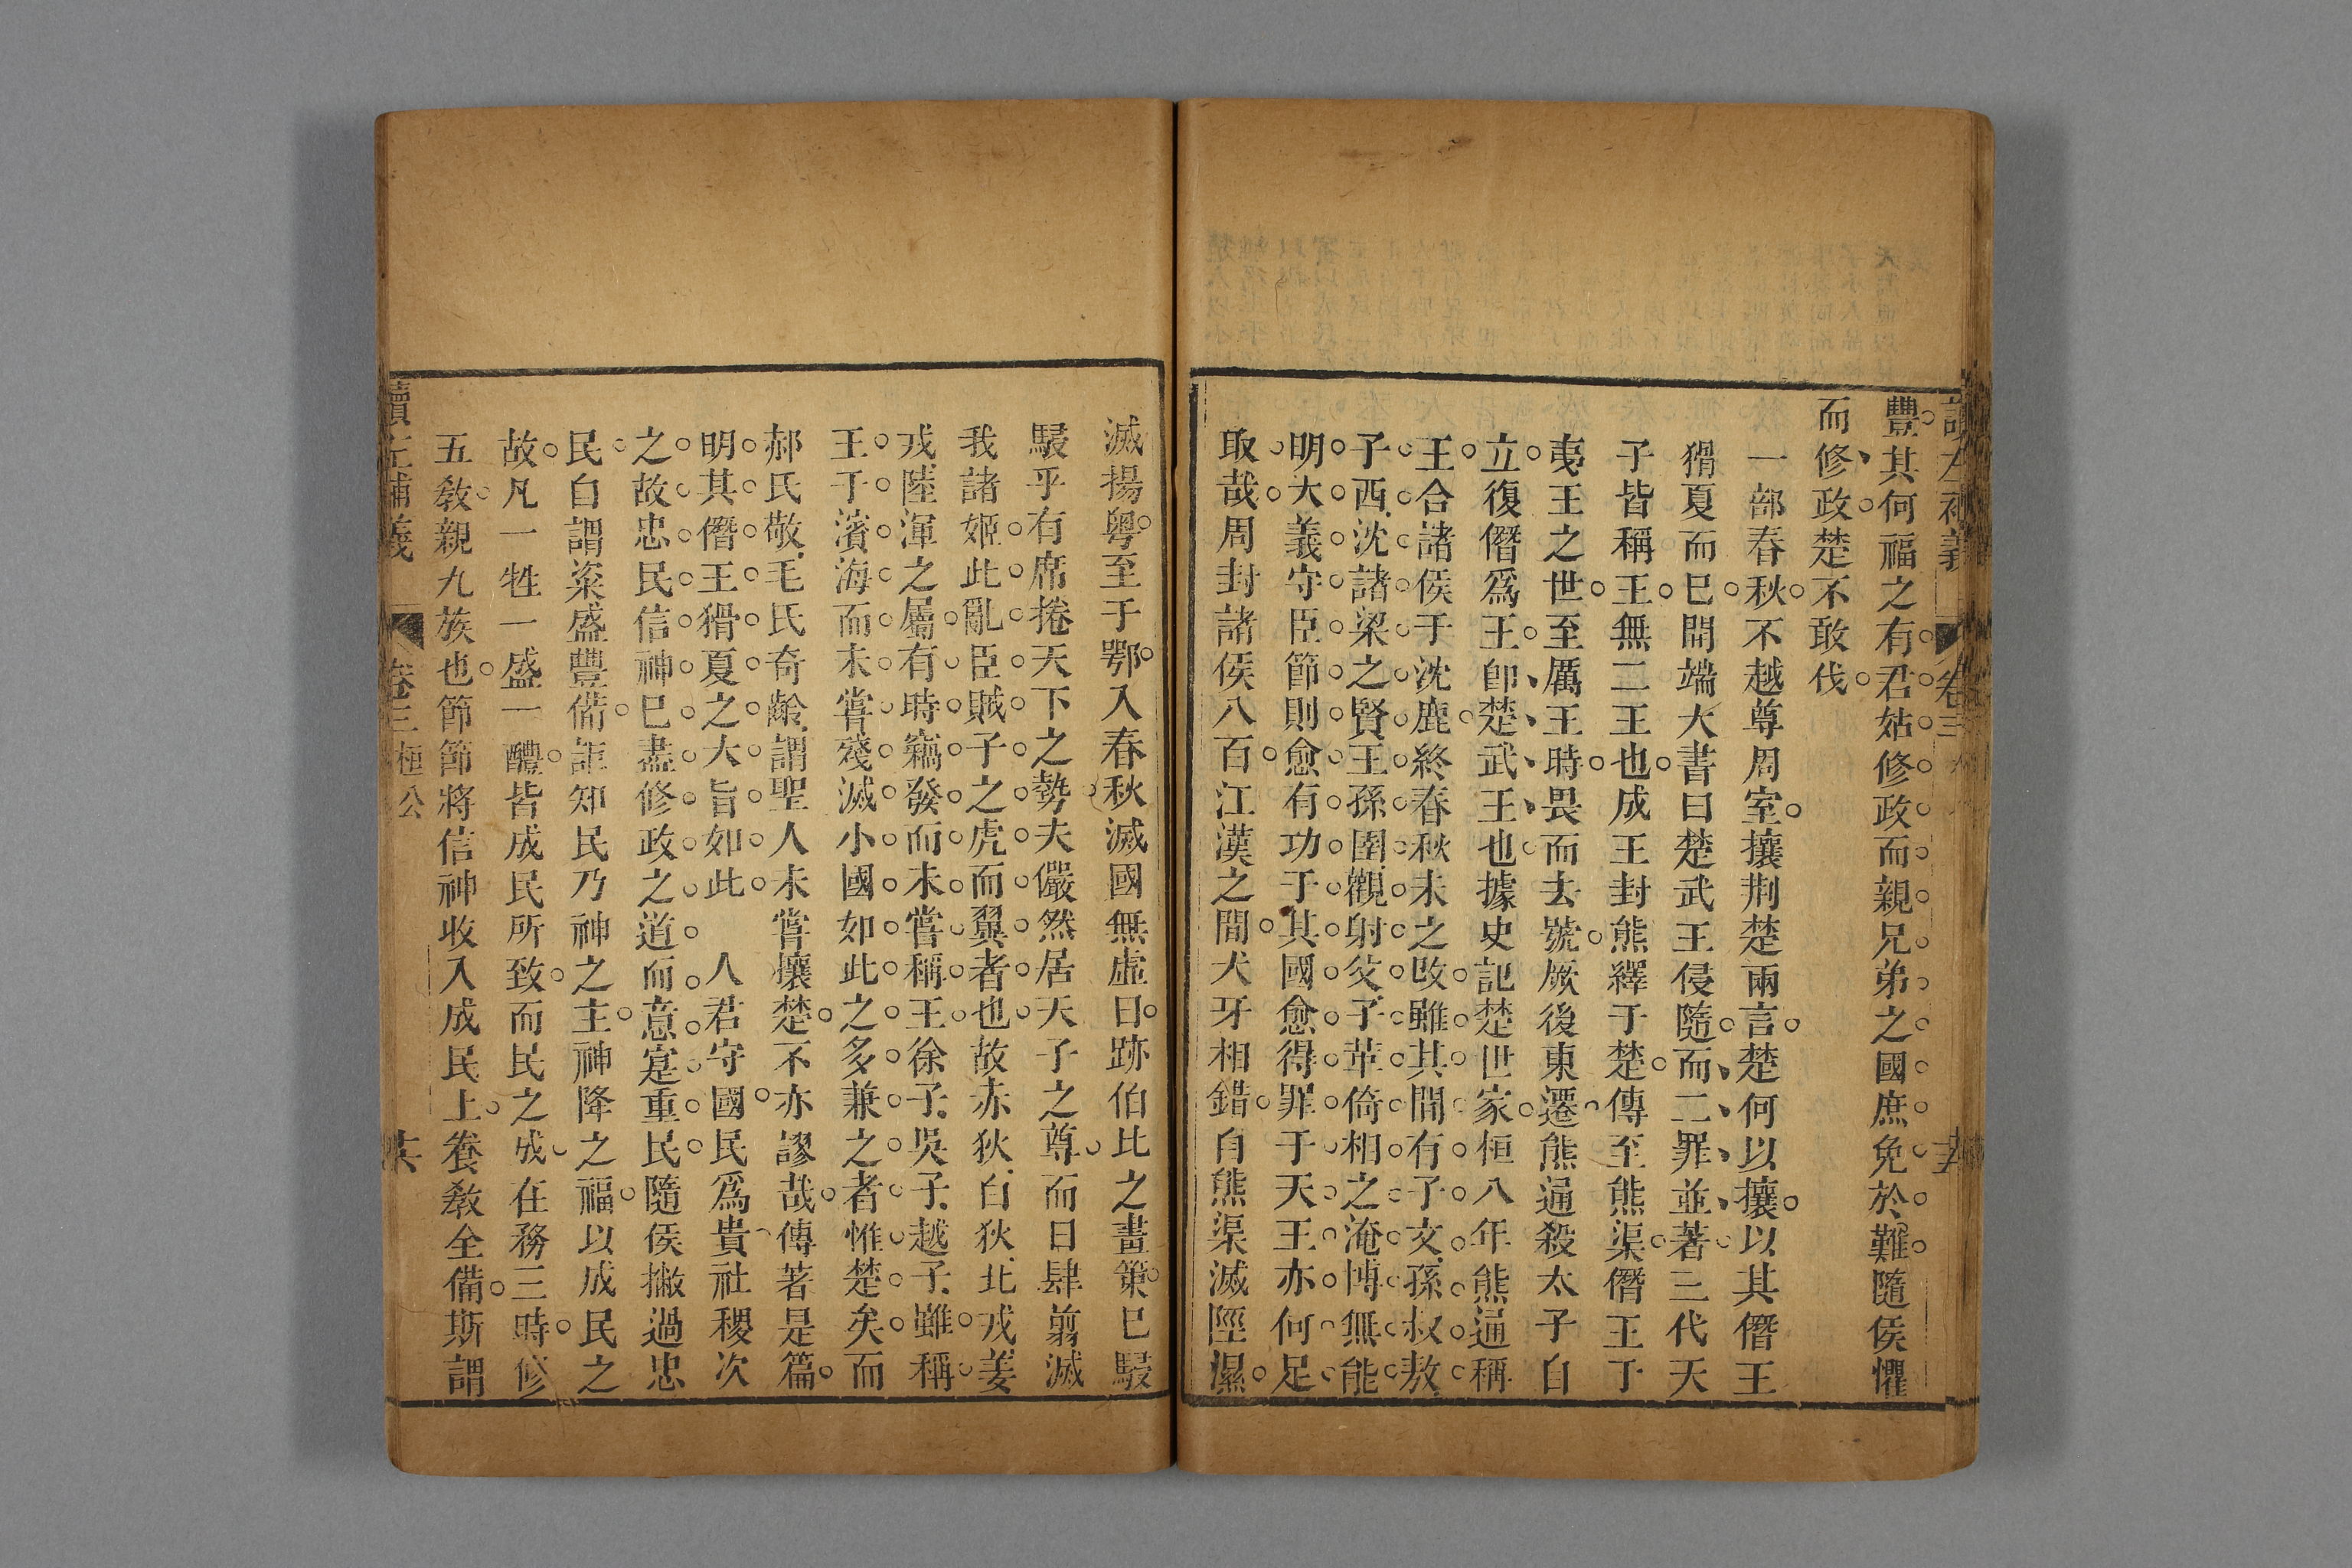 讀左補義 卷三
豐其何福之有君姑修政而親兄弟之國庶免於難隨侯懼
而修政楚不敢伐
一部春秋不越尊周室攘荆楚兩言楚何以攘以其僭王
猾夏而已開端大書曰楚武王侵隨而二罪並著三代天
子皆稱王無二王也成王封熊繹于楚傳至熊渠僭王于
夷王之世至厲王時畏而去號厥後東遷熊通殺太子自
立復僭爲王卽楚武王也據史記楚世家桓八年熊通稱
王合諸侯于沈鹿終春秋未之改雖其間有子文孫叔敖
子西沈諸梁之賢王孫圉觀射父子革倚相之淹博無能
明大義守臣節則愈有功于其國愈得罪于天王亦何足
取哉周封諸侯八百江漢之間犬牙相錯自熊渠滅陘濕
滅揚粵至于鄂入春秋滅國無虛日跡伯比之畫策已駸
駸乎有席捲天下之勢夫儼然居天子之尊而日肆翦滅
我諸姬此亂臣賊子之虎而翼者也故赤狄白狄北戎姜
戎陸渾之屬有時竊發而未嘗稱王徐子吳子越子雖稱
王于濱海而未嘗殘滅小國如此之多兼之者惟楚矣而
郝氏敬毛氏奇齡謂聖人未嘗攘楚不亦謬哉傳著是篇
明其僭王猾夏之大旨如此 人君守國民爲貴社稷次
之故忠民信神已盡修政之道而意寔重民隨侯撇過忠
民自謂粢盛豐備詎知民乃神之主神降之福以成民之
故凡一牲一盛一醴皆成民所致而民之成在務三時修
五敎親九族也節節將信神收入成民上養敎全備斯謂
讀左補義 卷三 桓公